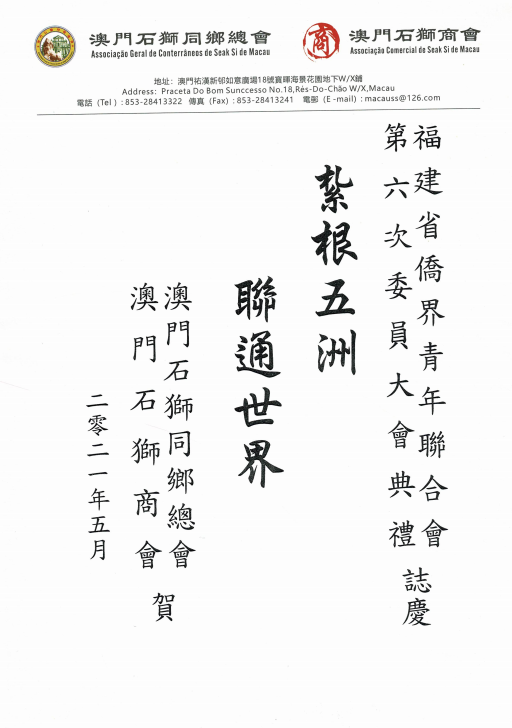 澳門石獅同鄉總會
Associação Geral de Conterrâneos de Seak Si de Macau
商
澳門石獅商會
Associação Comercial de Seak Si de Macau
地址：澳門祐漢新邨如意廣場18號寶暉海景花園地下W/X鋪
Address: Praceta Do Bom Sunccesso No.18,Rés-Do-Chão W/X,Macau
電話（Tel）: 853-28413322 傳真（Fax）: 853-28413241 電郵（E-mail）: macauss@126.com
福建省僑界青年聯合會
第六次委員大會典禮
誌慶
紮根五洲
聯通世界
澳門石獅同鄉總會
澳門石獅商會
賀
二零二一年五月